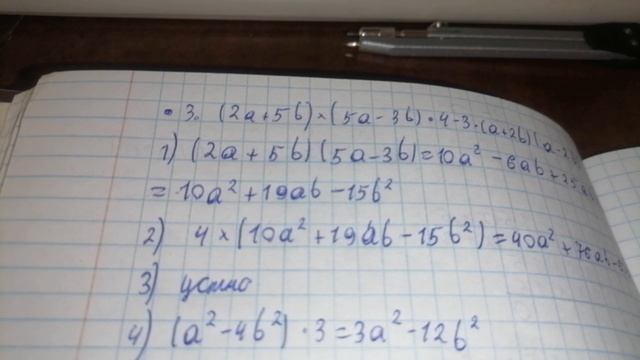 • 3. (2a+5b)×(5a-3b)·4-3·(a+2b)(a-2
1) (2a+5b)(5a-3b)=10a²-6ab+25a
= 10a²+19ab-15b²
2) 4×(10a²+19ab-15b²)=40a²+76ab-
3) устно
4) (a²-4b²)·3=3a²-12b²